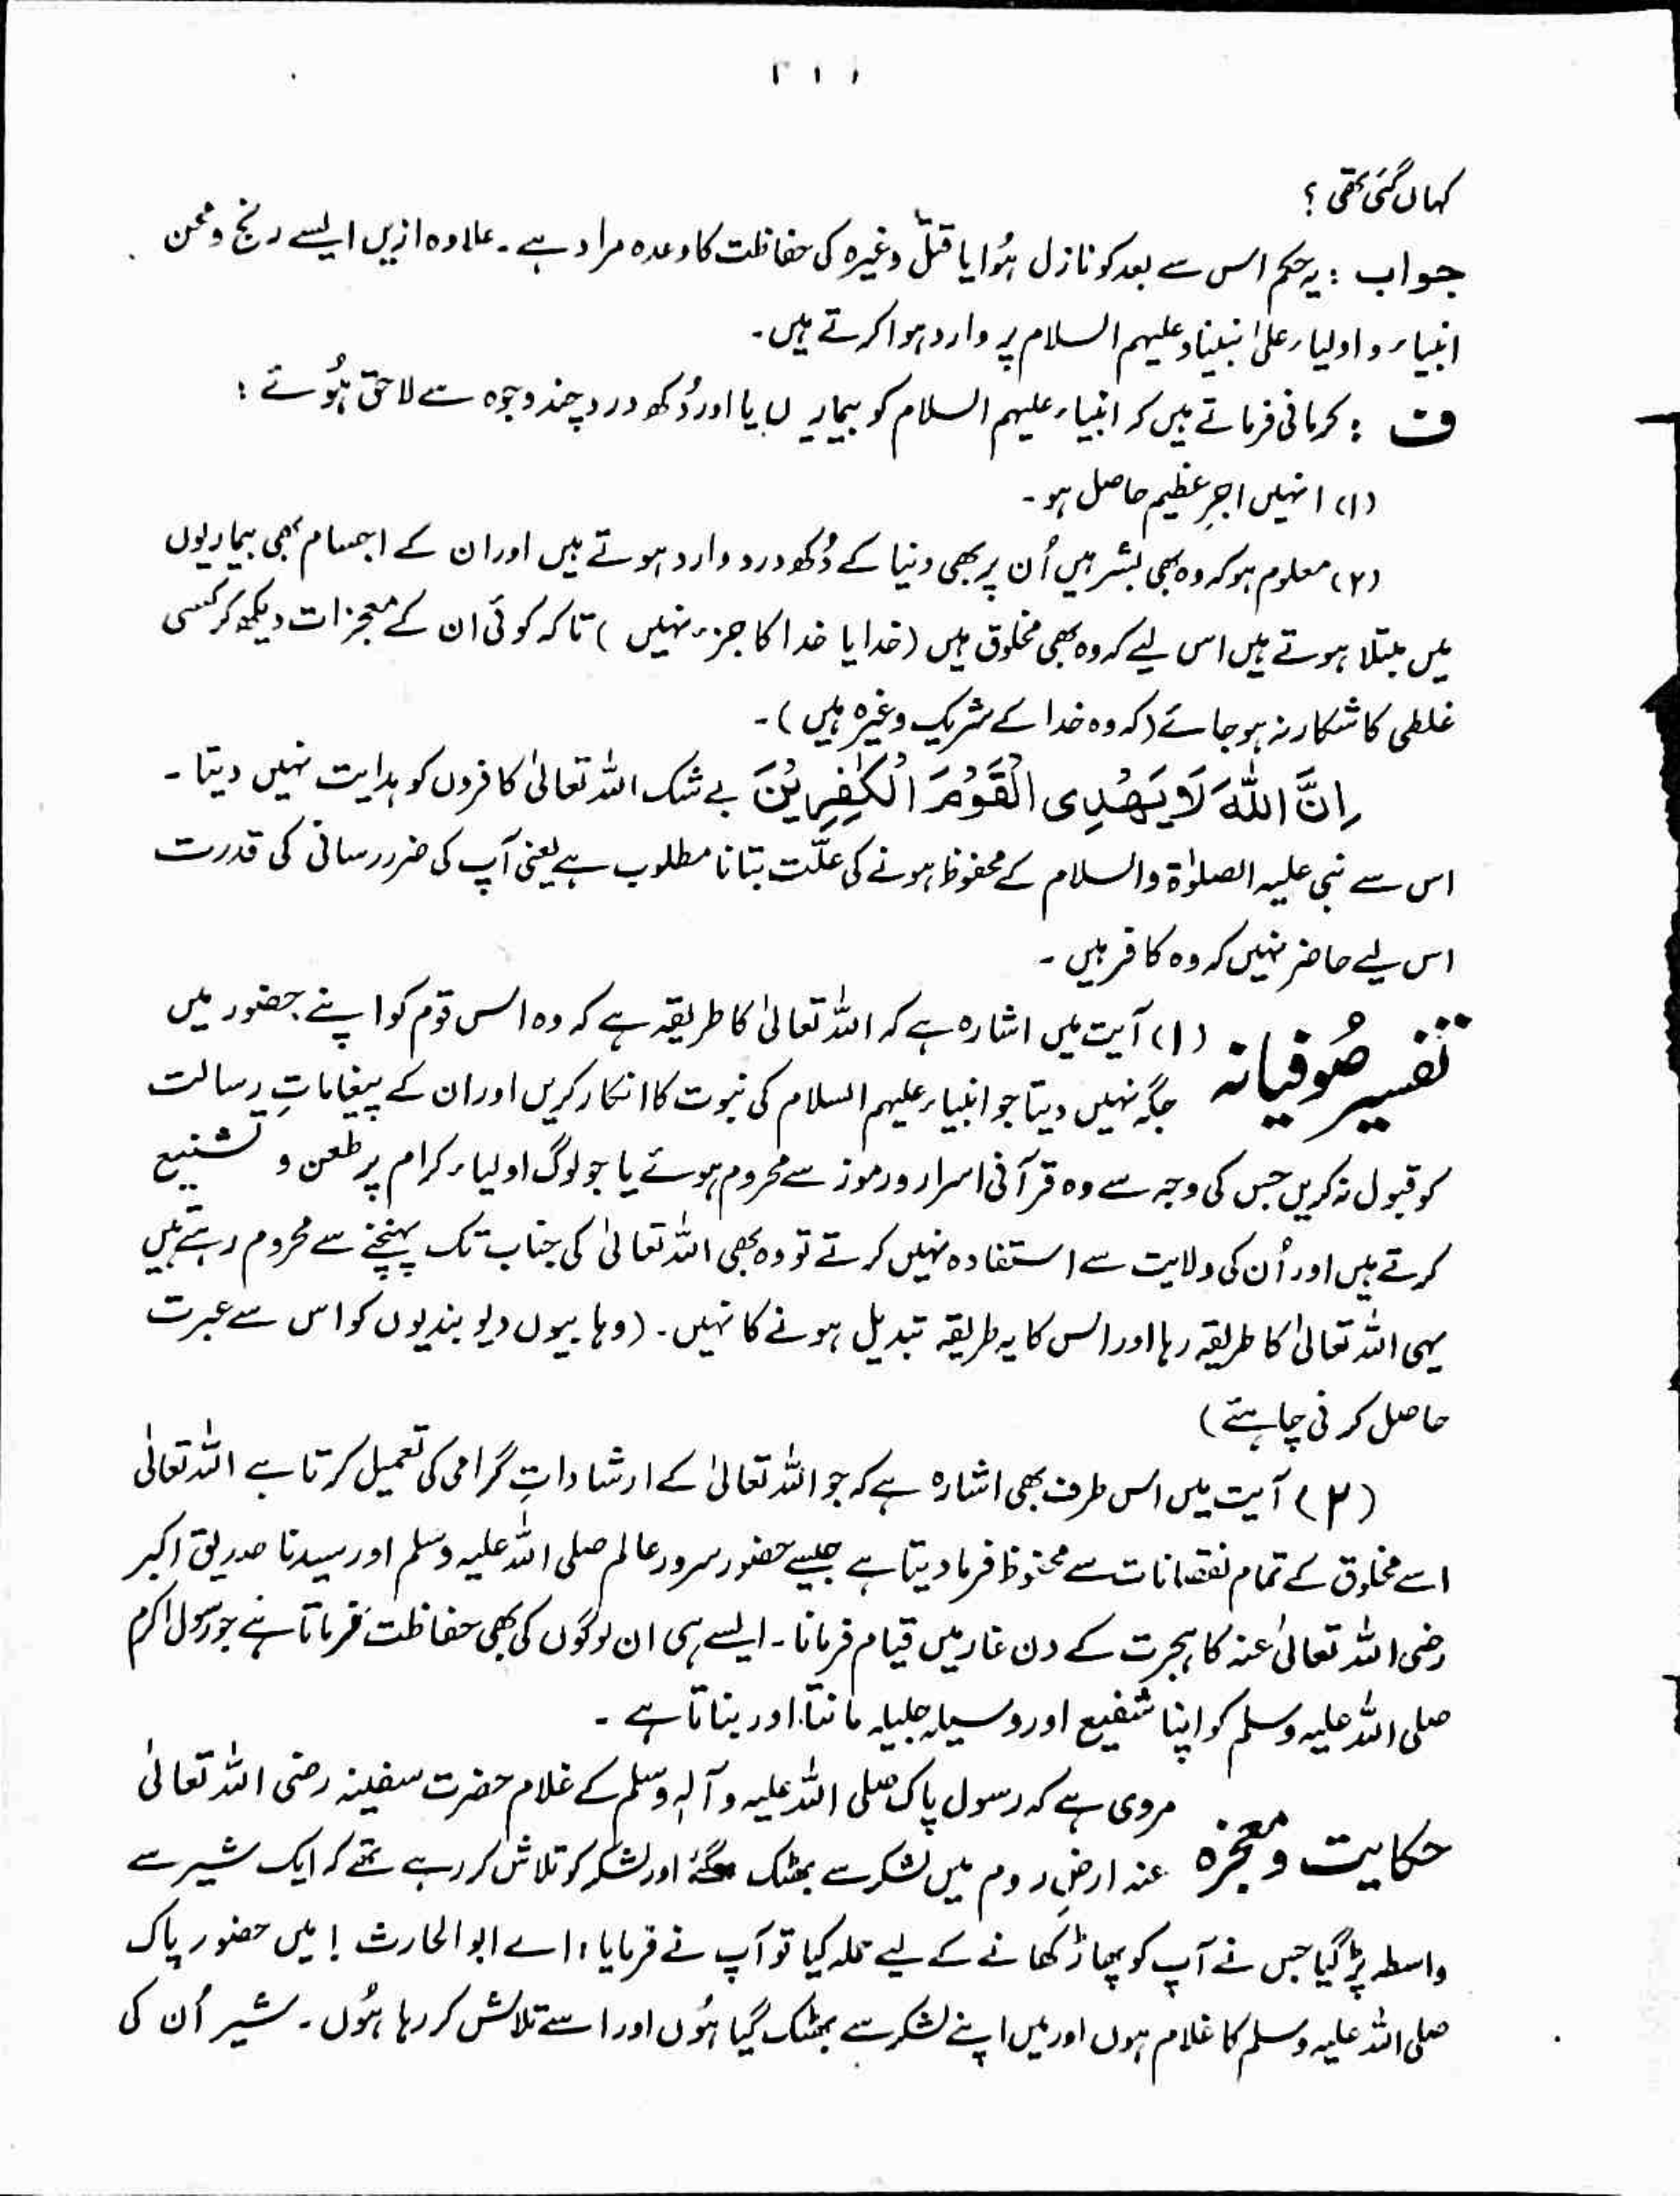 ۲۱۱
کہاں گئی تھی ؟
جواب : یہ حکم اس سے بعد کو نازل ہُوا یا قتل وغیرہ کی حفاظت کا وعدہ مراد ہے ۔ علاوہ ازیں ایسے رنج و محن
انبیاء و اولیاء علیٰ نبینا وعلیہم السلام پر وارد ہوا کرتے ہیں ۔
ف : کرمانی فرماتے ہیں کہ انبیاء علیہم السلام کو بیماریاں اور دُکھ درد چند وجوہ سے لاحق ہُوئے :
(۱) انہیں اجرِ عظیم حاصل ہو ۔
(۲) معلوم ہو کہ وہ بھی بشر ہیں اُن پر بھی دنیا کے دُکھ درد وارد ہوتے ہیں اور ان کے اجسام بھی بیماریوں
میں مبتلا ہوتے ہیں اس لیے کہ وہ بھی مخلوق ہیں (خدا یا خدا کا جزء نہیں ) تاکہ کوئی ان کے معجزات دیکھ کر کسی
غلطی کا شکار نہ ہو جائے (کہ وہ خدا کے شریک وغیرہ ہیں ) ۔
اِنَّ اللّٰہَ لَا یَھْدِی الْقَوْمَ الْکٰفِرِیْنَ بے شک اللہ تعالیٰ کافروں کو ہدایت نہیں دیتا ۔
اس سے نبی علیہ الصلوٰۃ والسلام کے محفوظ ہونے کی علّت بتانا مطلوب ہے یعنی آپ کی ضرر رسانی کی قدرت
اس لیے حاضر نہیں کہ وہ کافر ہیں ۔
تفسیر صُوفیانہ (۱) آیت میں اشارہ ہے کہ اللہ تعالیٰ کا طریقہ ہے کہ وہ اس قوم کو اپنے حضور میں
جگہ نہیں دیتا جو انبیاء علیہم السلام کی نبوت کا انکار کریں اور ان کے پیغاماتِ رسالت
کو قبول نہ کریں جس کی وجہ سے وہ قرآنی اسرار و رموز سے محروم ہوئے یا جو لوگ اولیاء کرام پر طعن و تشنیع
کرتے ہیں اور اُن کی ولایت سے استفادہ نہیں کرتے تو وہ بھی اللہ تعالیٰ کی جناب تک پہنچنے سے محروم رہتے ہیں
یہی اللہ تعالیٰ کا طریقہ رہا اور اس کا یہ طریقہ تبدیل ہونے کا نہیں ۔ (وہابیوں دیوبندیوں کو اس سے عبرت
حاصل کرنی چاہئے )
(۲) آیت میں اس طرف بھی اشارہ ہے کہ جو اللہ تعالیٰ کے ارشاداتِ گرامی کی تعمیل کرتا ہے اللہ تعالیٰ
اسے مخلوق کے تمام نقصانات سے محفوظ فرما دیتا ہے جیسے حضور سرور عالم صلی اللہ علیہ وسلم اور سیدنا صدیق اکبر
رضی اللہ تعالیٰ عنہ کا ہجرت کے دن غار میں قیام فرمانا ۔ ایسے ہی ان لوگوں کی بھی حفاظت فرماتا ہے جو رسول اکرم
صلی اللہ علیہ وسلم کو اپنا شفیع اور وسیلہ جلیلہ مانتا اور بناتا ہے ۔
حکایت و معجزہ مروی ہے کہ رسول پاک صلی اللہ علیہ وآلہٖ وسلم کے غلام حضرت سفینہ رضی اللہ تعالیٰ
عنہ ارضِ روم میں لشکر سے بھٹک گئے اور لشکر کو تلاش کر رہے تھے کہ ایک شیر سے
واسطہ پڑ گیا جس نے آپ کو پھاڑ کھانے کے لیے حملہ کیا تو آپ نے فرمایا ، اے ابوالحارث ! میں حضور پاک
صلی اللہ علیہ وسلم کا غلام ہوں اور میں اپنے لشکر سے بھٹک گیا ہُوں اور اسے تلاش کر رہا ہُوں ۔ شیر اُن کی